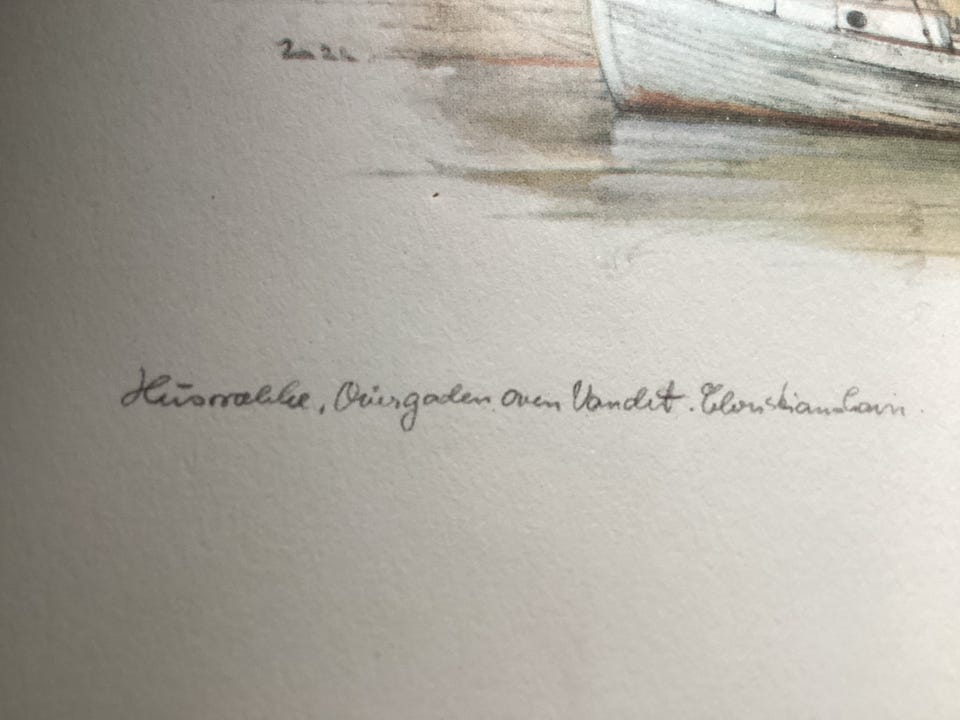 2022
Husrække, Overgaden oven Vandet. Christianshavn.